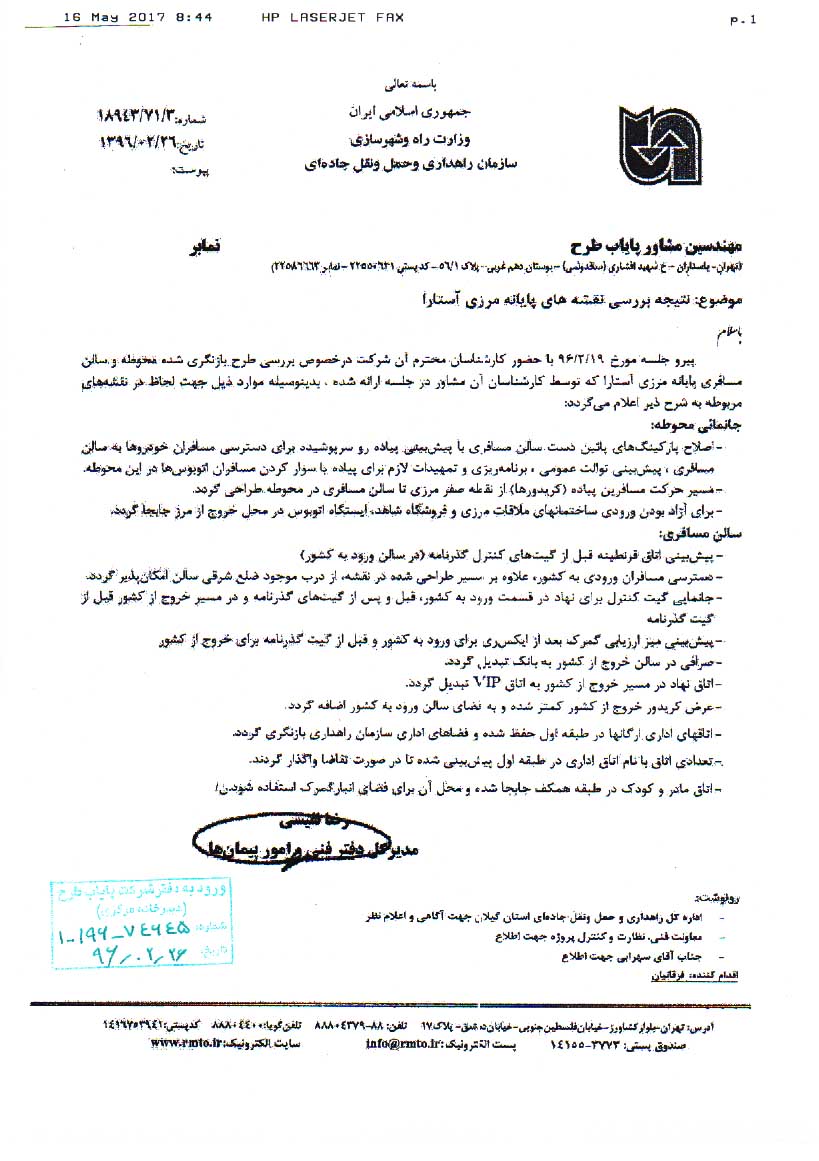 16 May 2017 8:44 HP LASERJET FAX p.1
باسمه تعالی
جمهوری اسلامی ایران
وزارت راه وشهرسازی
سازمان راهداری وحمل ونقل جاده‌ای
شماره: ۱۸۹۴۳/۷۱/۳
تاریخ: ۱۳۹۶/۰۲/۲۶
پیوست:
مهندسین مشاور پایاب طرح نمابر
(تهران- پاسداران - خ شهید افشاری - بوستان دهم غربی- پلاک ۵۶/۱ - کد پستی - نمابر ۲۲۵۸۶۶۶۳)
موضوع: نتیجه بررسی نقشه های پایانه مرزی آستارا
باسلام
پیرو جلسه مورخ ۹۶/۲/۱۹ با حضور کارشناسان محترم آن شرکت درخصوص بررسی طرح بازنگری شده محوطه و سالن
مسافری پایانه مرزی آستارا که توسط کارشناسان آن مشاور در جلسه ارائه شده ، بدینوسیله موارد ذیل جهت لحاظ در نقشه‌های
مربوطه به شرح ذیر اعلام می‌گردد:
جانمائی محوطه:
-اصلاح پارکینگ‌های پائین دست سالن مسافری با پیش‌بینی پیاده رو سرپوشیده برای دسترسی مسافران خودروها به سالن
مسافری ، پیش‌بینی توالت عمومی ، برنامه‌ریزی و تمهیدات لازم برای پیاده یا سوار کردن مسافران اتوبوس‌ها در این محوطه.
-مسیر حرکت مسافرین پیاده (کریدورها) از نقطه صفر مرزی تا سالن مسافری در محوطه طراحی گردد.
-برای آزاد بودن ورودی ساختمانهای ملاقات مرزی و فروشگاه شاهد، ایستگاه اتوبوس در محل خروج از مرز جابجا گردد.
سالن مسافری:
-پیش‌بینی اتاق قرنطینه قبل از گیت‌های کنترل گذرنامه (در سالن ورود به کشور)
-دسترسی مسافران ورودی به کشور، علاوه بر مسیر طراحی شده در نقشه، از درب موجود ضلع شرقی سالن امکان‌پذیر گردد.
-جانمایی گیت کنترل برای نهاد در قسمت ورود به کشور، قبل و پس از گیت‌های گذرنامه و در مسیر خروج از کشور قبل از
گیت گذرنامه
-پیش‌بینی میز ارزیابی گمرک بعد از ایکس‌ری برای ورود به کشور و قبل از گیت گذرنامه برای خروج از کشور
-صرافی در سالن خروج از کشور به بانک تبدیل گردد.
-اتاق نهاد در مسیر خروج از کشور به اتاق VIP تبدیل گردد.
-عرض کریدور خروج از کشور کمتر شده و به فضای سالن ورود به کشور اضافه گردد.
-اتاقهای اداری ارگانها در طبقه اول حفظ شده و فضاهای اداری سازمان راهداری بازنگری گردد.
-تعدادی اتاق با نام اتاق اداری در طبقه اول پیش‌بینی شده تا در صورت تقاضا واگذار گردند.
-اتاق مادر و کودک در طبقه همکف جابجا شده و محل آن برای فضای انبارگمرک استفاده شود.ن/
رضا نفیسی
مدیرکل دفتر فنی و امور پیمان‌ها
رونوشت:
- اداره کل راهداری و حمل ونقل جاده‌ای استان گیلان جهت آگاهی و اعلام نظر
- معاونت فنی، نظارت و کنترل پروژه جهت اطلاع
- جناب آقای سهرابی جهت اطلاع
اقدام کننده: فرقانیان
ورود به دفتر شرکت پایاب طرح
(دبیرخانه مرکزی)
شماره: ۱-۱۹۹-۷۴۶۴۵
تاریخ: ۹۶/۰۲/۲۶
آدرس: تهران-بلوار کشاورز-خیابان فلسطین جنوبی-خیابان دمشق- پلاک۱۷ تلفن: ۸۸-۸۸۸۰۴۳۷۹ تلفن گویا: ۸۸۸۰۴۴۰۰ کدپستی: ۱۴۱۶۷۵۳۹۴۱
صندوق پستی: ۳۷۷۳-۱۴۱۵۵ پست الکترونیک: info@rmto.ir سایت الکترونیک: www.rmto.ir